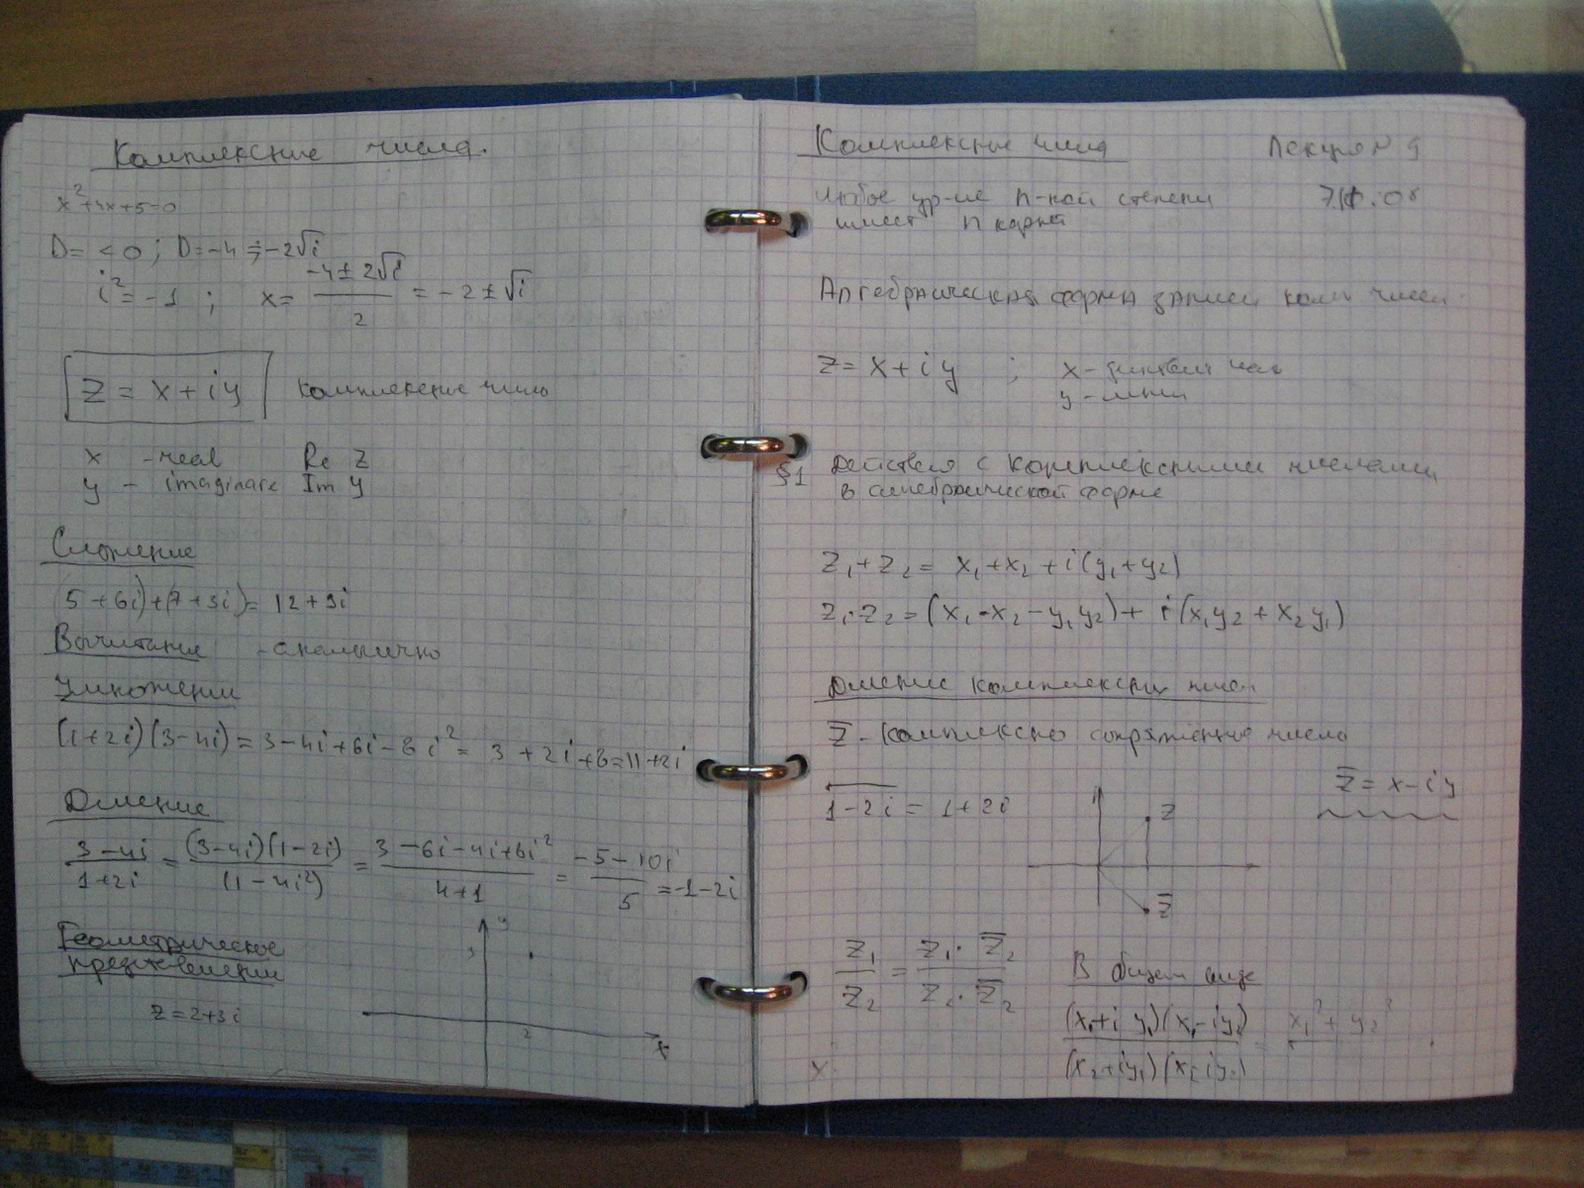 Комплексные числа.
x²+4x+5=0
D= <0 ; D=-4 = -2√i
i² = -1 ; x= (-4± 2√i)/2 = -2±√i
Z = x+iy комплексное число
x - real Re Z
y - imaginare Im y
Сложение
(5+6i)+(7+3i)= 12+9i
Вычитание - аналогично
Умножение
(1+2i)(3-4i) = 3-4i+6i-8i² = 3+2i+8=11+2i
Деление
(3-4i)/(1+2i) = (3-4i)(1-2i)/(1-4i²) = (3-6i-4i+8i²)/(4+1) = (-5-10i)/5 = -1-2i
Геометрическое
представление
y
3
Z=2+3i
2
x
Комплексные числа Лекция №9
Любое ур-ие n-ной степени
имеет n корней
Алгебраическая форма записи комп чисел
Z= x+iy ; x-
y-
§1 Действия с комплексными числами
в алгебраической форме
Z₁+Z₂= x₁+x₂+i(y₁+y₂)
Z₁·Z₂=(x₁·x₂-y₁y₂)+ i(x₁y₂+x₂y₁)
Деление комплексных чисел
Z̅ - комплексно сопряженное число
Z̅ = x-iy
\overline{1-2i} = 1+2i
Z
Z̅
Z₁/Z₂ = Z₁·Z̅₂/Z₂·Z̅₂ В общем виде
(x₁+i y₁)(x₁-iy₂)/(x₂+iy₁)(x₂-iy₂) = x₁²+y₂²